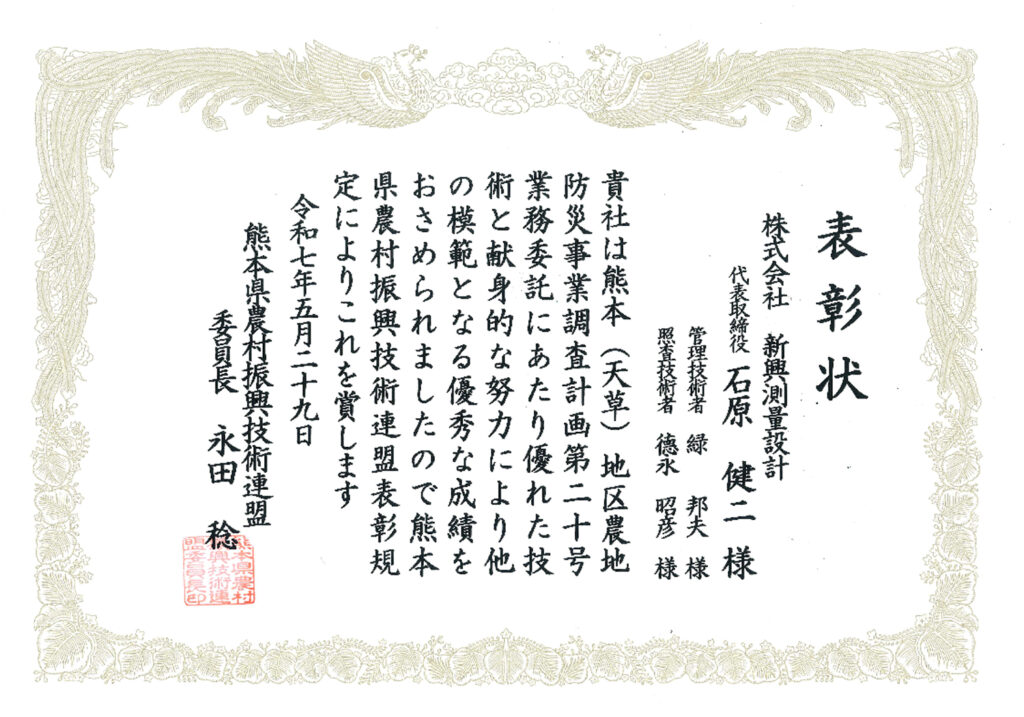 表彰状
株式会社 新興測量設計
代表取締役 石原 健二 様
管理技術者 緑 邦夫 様
照査技術者 徳永 昭彦 様
貴社は熊本（天草）地区農地
防災事業調査計画第二十号
業務委託にあたり優れた技
術と献身的な努力により他
の模範となる優秀な成績を
おさめられましたので熊本
県農村振興技術連盟表彰規
定によりこれを賞します
令和七年五月二十九日
熊本県農村振興技術連盟
委員長 永田 稔
熊本県農村
振興技術連
盟委員長印